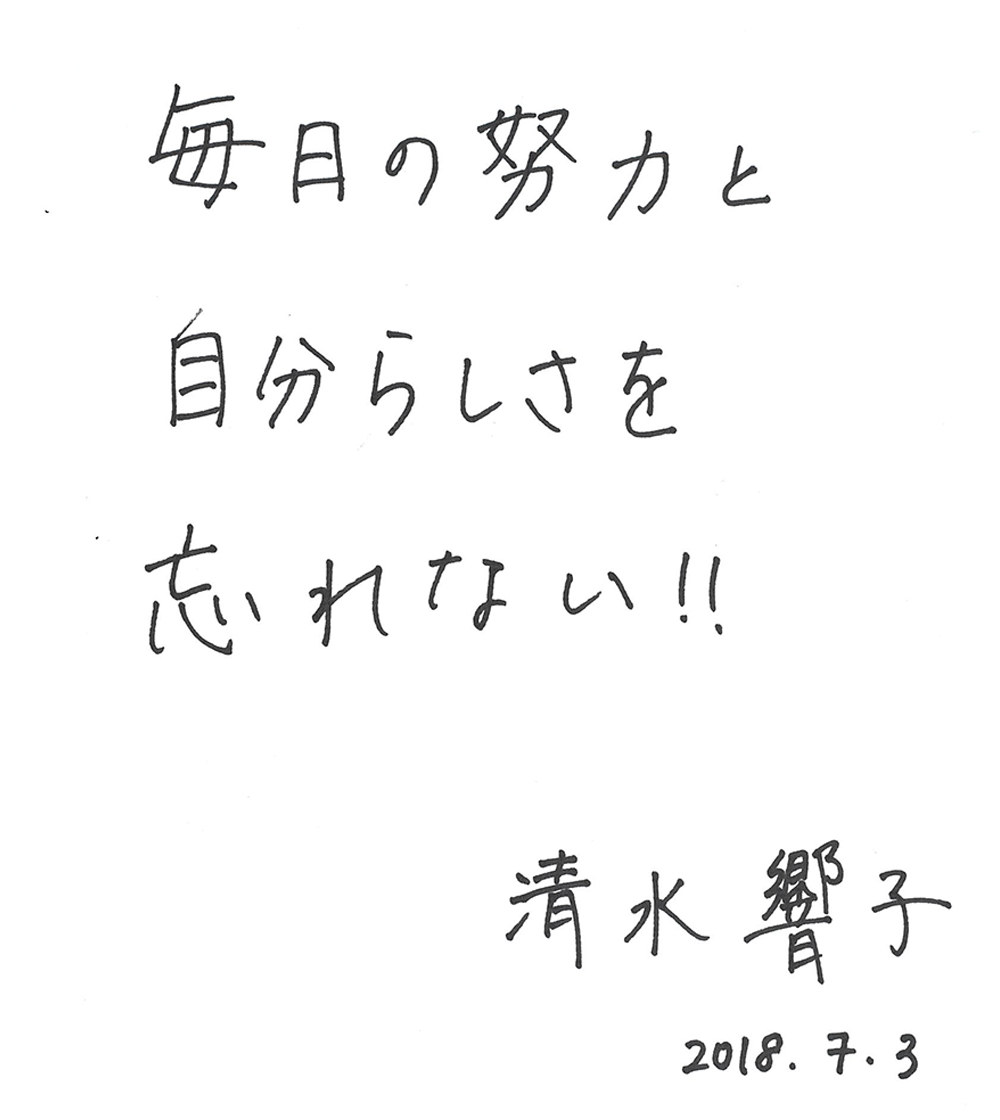 毎日の努力と
自分らしさを
忘れない!!
清水 響子
2018.7.3